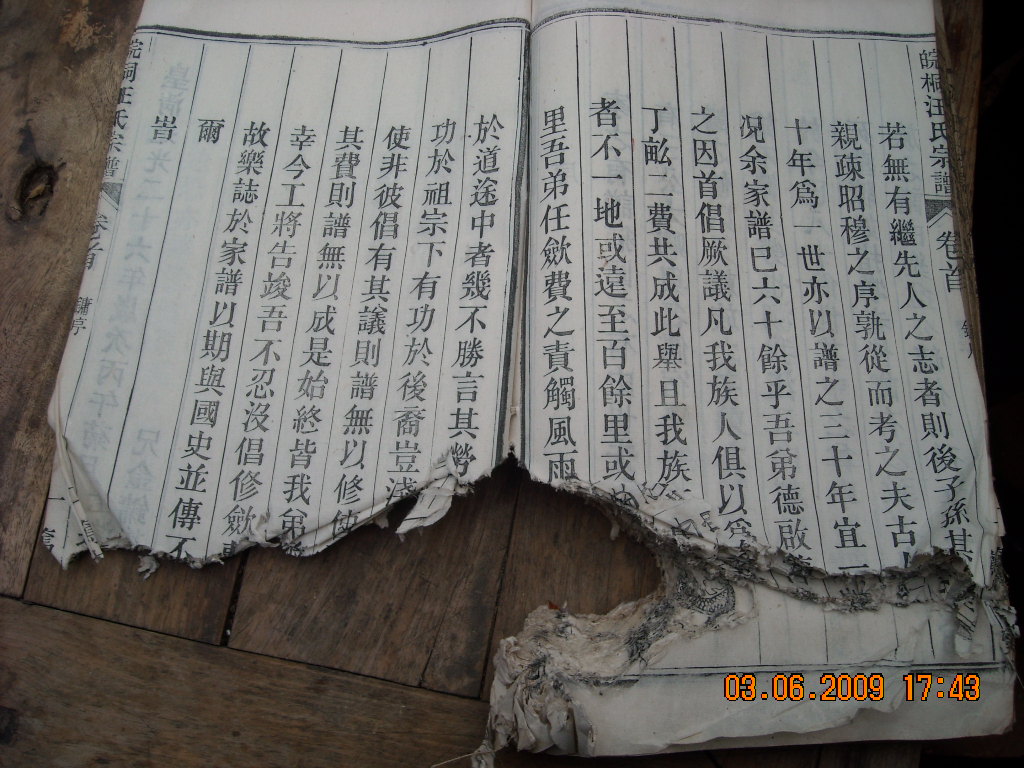 皖桐汪氏宗譜 卷首
若無有繼先人之志者則後子孫其
親疎昭穆之序孰從而考之夫古
十年為一世亦以譜之三十年宜一
况余家譜已六十餘乎吾弟德啟
之因首倡厥議凡我族人俱以為
丁畝二費共成此舉且我族
者不一地或遠至百餘里或
里吾弟任歛費之責觸風雨
於道途中者幾不勝言其勞
功於祖宗下有功於後裔豈淺
使非彼倡有其議則譜無以修使
其費則譜無以成是始終皆我弟
幸今工將告竣吾不忍沒倡修歛
故樂誌於家譜以期與國史並傳不
爾
旹
皖桐汪氏宗譜 卷之首
03.06.2009 17:43